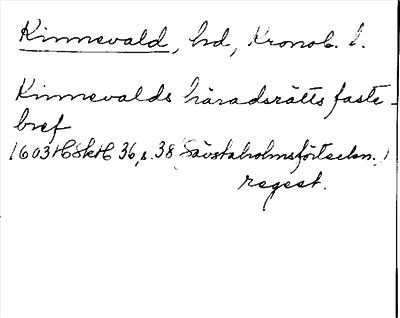 Kinnevald, hd, Kronob. l.
Kinnevalds häradsrätts faste-
bref
1603 HSkH 36, s. 38 (Sävstaholmsförteckn.)
regest.